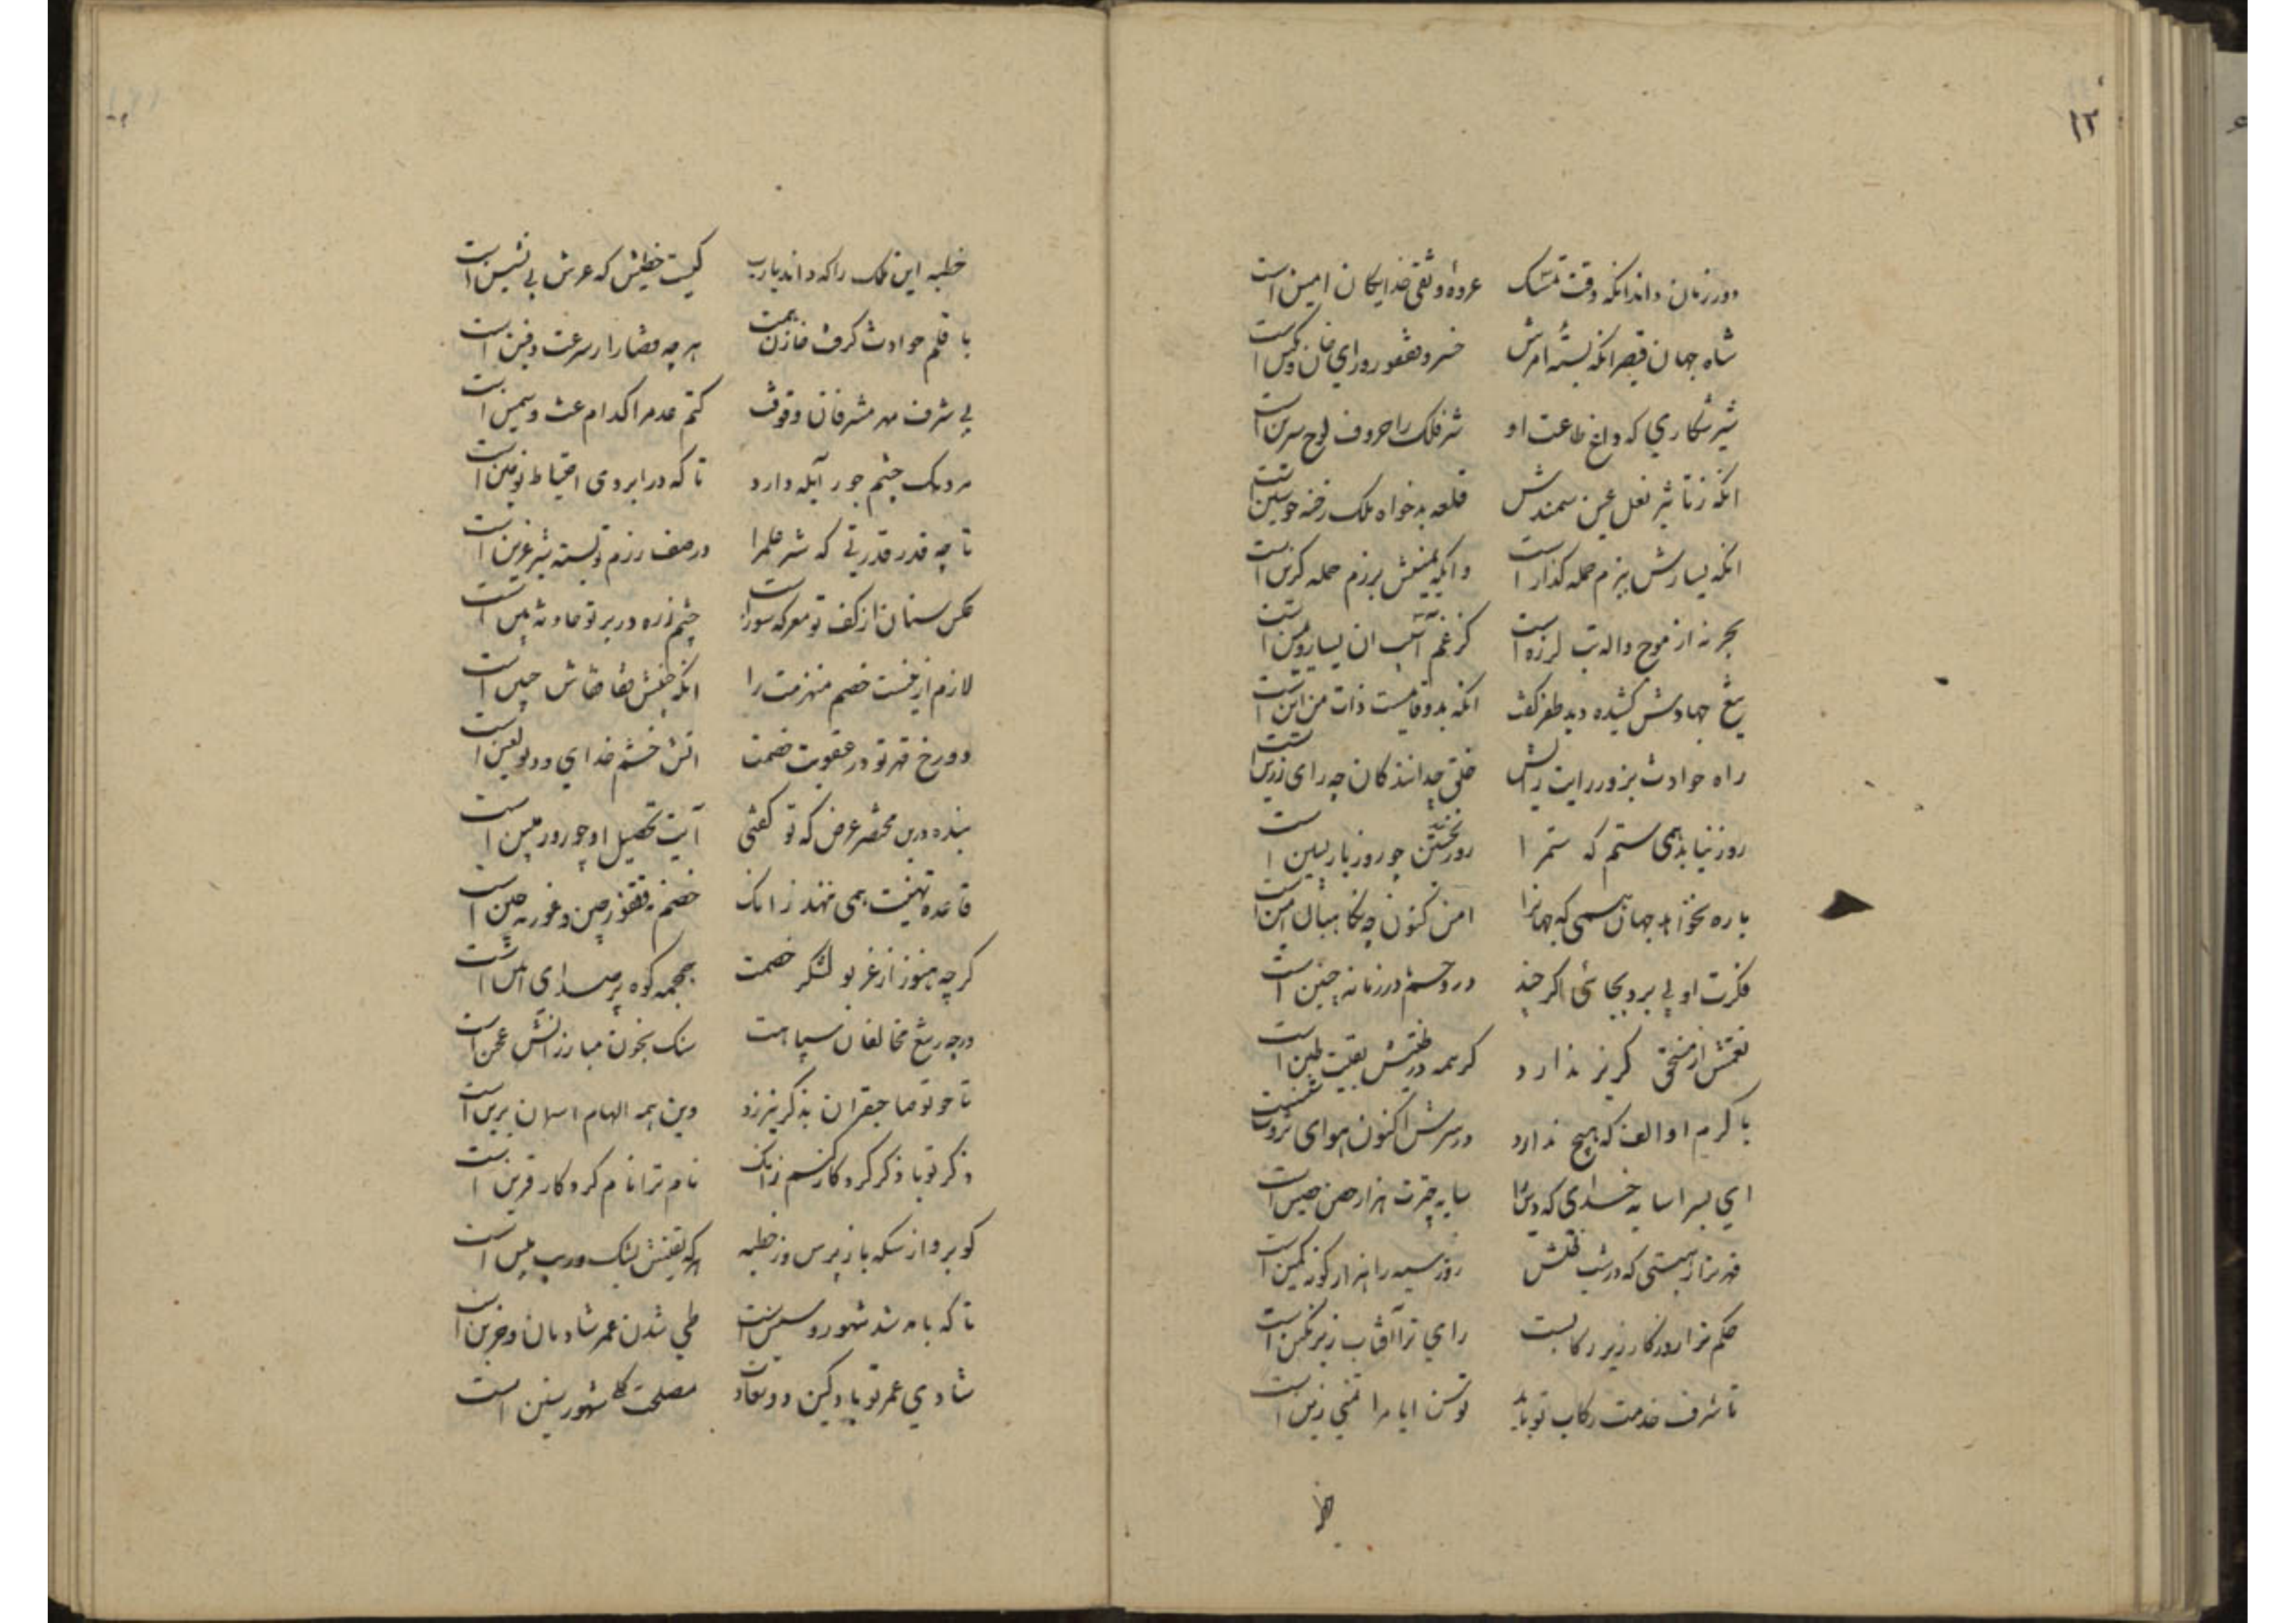 ۱۲
دور زمان داند انکه وقت تمسک عروه وثقی خدایکان امین است
شاه جهان قیصر انکه بسته امرش خسرو فغفور و رای خان و تکین است
شیر شکاری که داغ طاعت او شیر فلک را حروف لوح سرین است
انکه ز تاثیر نعل سمندش قلعه بدخواه ملک رخنه چو سین است
انکه یسارش ببزم حمله کذار است وانکه یمینش برزم حمله کزین است
بحر نه از موج واله تب لرزه است کز غم آسیب ان یسار و یمین است
تیغ جهادش کشیده دید ظفر کفت انکه بدو قایمست ذات من این است
راه حوادث بزد رزانت رایش خلق چه دانند کان چه رای رزین است
روز نیابد همی ستم که ستم را روز نخستین چو روز باز پسین است
باره نخواهد جهان همی که جهانرا امن کنون چه نکاهبان امین است
فکرت او پی برد بجائی اکر چند در رحم مادر زمانه جنین است
نعمتش از مستحق کریز ندارد کر همه در طینتش بقیت طین است
با کرم او الف که هیچ ندارد در سرش اکنون هوای ثروت شین است
ای بسرا سایه خدای که دین را سایه چترت هزار حصن حصین است
قهر ترا هیبتی که در شب ظلمش روز سیه را هزار کونه کمین است
حکم ترا روزکار زیر رکابست رای ترا آفتاب زیر نکین است
تا شرف خدمت رکاب تو یابد توسن ایام را تمنی زین است
خطبه
خطبه این ملک را که داند یارب کیست خطیبش که عرش پی نشین است
با قلم حوادث کرفت خازن همت هر چه قضا را ز سر غیب دفین است
بی شرف مهر مشرفان وقوفت کتم عدم را کدام غث و سمین است
مردمک چشم جور آبله دارد تا که در ابروی احتیاط تو چین است
تا چه قدر قدرتی که شیر علم را در صف رزم تو بسته شیر عرین است
عکس سنان از کف تو معرکه سوز است چشم زره در بر تو حادثه بین است
لازم از نیست خصم منهزمت را انکه خیالش قفا قفاش جبین است
دوزخ قهر تو در عقوبت خصمت اتش خشم خدای و دیو لعین است
بنده درین محضر عرض که تو کفتی آیت تحصیل او چو روز مبین است
قاعده تهنیت همی ننهد زانک خصم نه فغفور چین و غور نه چین است
کرچه هنوز از غریو لشکر خصمت جمجمه کوه پر صدای انین است
درجه تیغ مخالفان سپاهت سنک بخون مبارزانش عجین است
تا چو تو صاحبقران بذکر نیرزد وین همه الهام اسمان برین است
ذکر تو با ذکر کردکار کنم زانک نام ترا نام کردکار قرین است
کو برو از سکه باز پرس و ز خطبه هر که یقینش بشک و ریب مبین است
تا که بآمد شد شهور و سنین است طی شدن عمر شادمان و حزین است
شادی عمر تو باد کین دو سعادت مصلحت کل شهور و سنین است